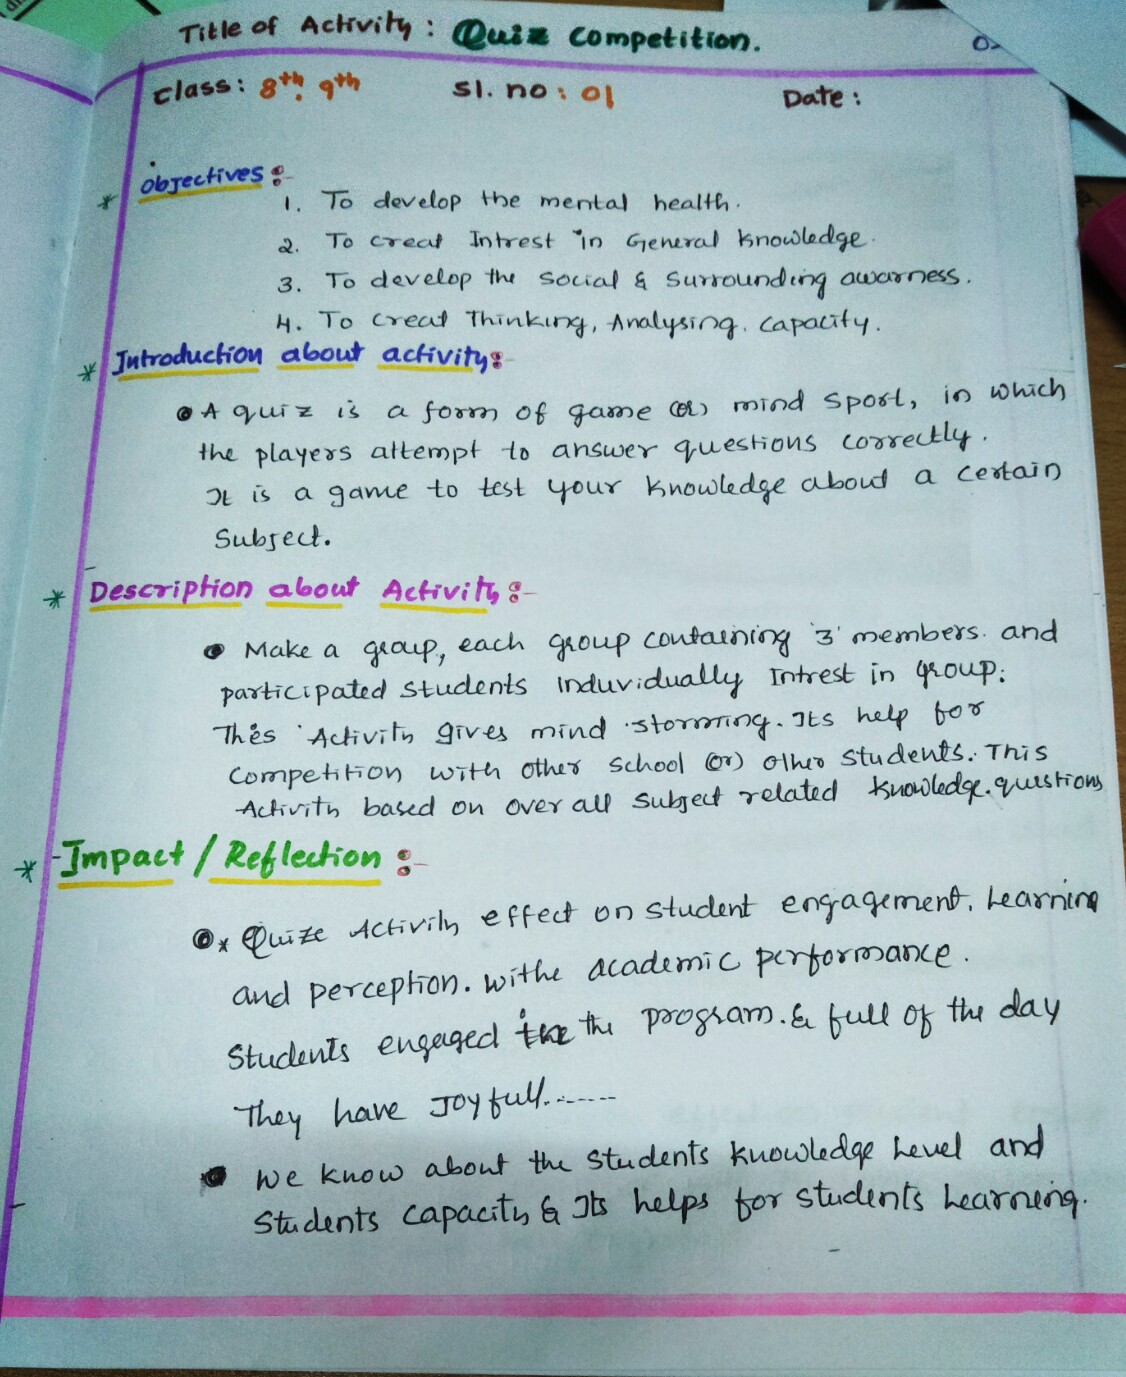 Title of Activity : Quiz Competition.
Class: 8th, 9th Sl. no : 01 Date :
Objectives :-
1. To develop the mental health.
2. To creat Intrest in General Knowledge.
3. To develop the Social & Surrounding awarness.
4. To creat Thinking, Analysing, Capacity.
Introduction about activity:-
A quiz is a form of game (or) mind sport, in which
the players attempt to answer questions correctly.
It is a game to test your Knowledge about a certain
Subject.
Description about Activity :-
Make a group, each group containing '3' members. and
participated students induvidually Intrest in group.
This Activity gives mind storming. Its help for
Competition with other school (or) other students. This
Activity based on over all Subject related Knowledge. questions
Impact / Reflection :-
Quize Activity effect on student engagement, Learning
and perception. withe academic performance.
Students engaged in the program. & full of the day
They have Joyfull.......
We know about the Students Knowledge Level and
Students Capacity & Its helps for students Learning.